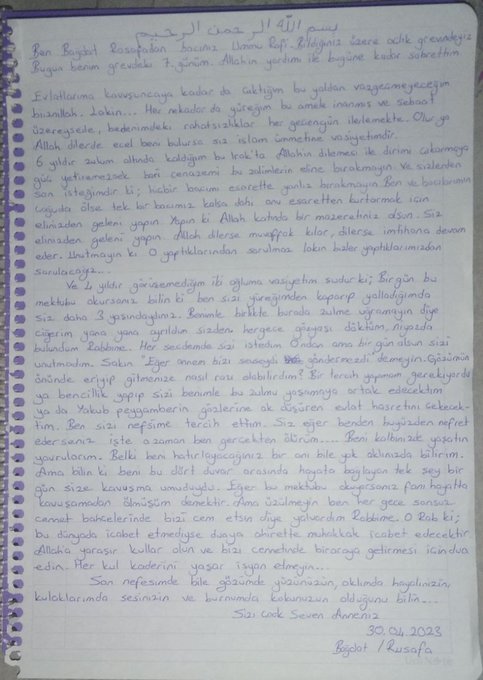 بسم الله الرحمن الرحيم
Ben Bağdat Rasafadan bacınız Ummu Rapi. Bildiğiniz üzere açlık grevindeyiz
Bugün benim grevdeki 7. günüm. Allahın yardımı ile bugüne kadar sabrettim
Evlatlarıma kavuşuncaya kadar da çıktığım bu yoldan vazgeçmeyeceğim
biiznillah. Lakin... Her nekadar da yüreğim bu amele inanmış ve sebaat
üzereysede, bedenimdeki rahatsızlıklar her geçengün ilerlemekte. Olur ya
Allah dilerde ecel beni bulursa siz islam ümmetine vasiyetimdir.
6 yıldır zulum altında kaldığım bu Irak'ta Allahın dilemesi ile dirimi çıkarmaya
güç yetiremezsek bari cenazemi bu zalimlerin eline bırakmayın. Ve sizlerden
son isteğimdir ki; hiçbir bacımı esarette yanlız bırakmayın. Ben ve bacılarımın
çoğuda ölse tek bir bacımız kalsa dahi onu esaretten kurtarmak için
elinizden geleni yapın. Yapın ki Allah katında bir mazeretiniz olsun. Siz
elinizden geleni yapın. Allah dilerse muvaffak kılar, dilerse imtihana devam
eder. Unutmayın ki O yaptıklarından sorulmaz lakin bizler yaptıklarımızdan
sorulacağız...
Ve 4 yıldır görüşemediğim iki oğluma vasiyetim şudur ki; Birgün bu
mektubu okursanız bilin ki ben sizi yüreğimden koparıp yolladığımda
siz daha 3 yaşındaydınız. Benimle birlikte burada zulme uğramayın diye
ciğerim yana yana ayrıldım sizden. hergece gözyaşı döktüm, niyazda
bulundum Rabbime. Her secdemde sizi istedim Ondan ama bir gün olsun sizi
unutmadım. Sakın "Eğer annem bizi sevseydi göndermezdi" demeyin. Gözümün
önünde eriyip gitmenize nasıl razı olabilirdim? Bir tercih yapmam gerekiyordu
ya bencillik yapıp sizi benimle bu zulmu yaşamaya ortak edecektim
ya da Yakub peygamberin gözlerine ak düşüren evlat hasretini çekecek-
tim. Ben sizi nefsime tercih ettim. Siz eğer benden bugüzden nefret
ederseniz işte o zaman ben gerçekten ölürüm.... Beni kalbinizde yaşatın
yavrularım. Belki beni hatırlayacağınız bir anı bile yok aklınızda bilirim.
Ama bilin ki beni bu dört duvar arasında hayata bağlayan tek şey bir
gün size kavuşma umuduydu. Eğer bu mektubu okuyorsanız fani hayatta
kavuşamadan ölmüşüm demektir. Ama üzülmeyin ben her gece sonsuz
cennet bahçelerinde bizi cem etsin diye yalvardım Rabbime. O Rab ki;
bu dünyada icabet etmediyse duaya ahirette muhakkak icabet edecektir.
Allaha yaraşır kullar olun ve bizi cennetinde biraraya getirmesi için dua
edin. Her kul kaderini yaşar isyan etmeyin...
Son nefesimde bile gözümde yüzünüzün, aklımda hayalinizin,
kulaklarımda sesinizin ve burnumda kokunuzun olduğunu bilin....
Sizi Çook Seven Anneniz
30.04.2023
Bağdat / Rusafa